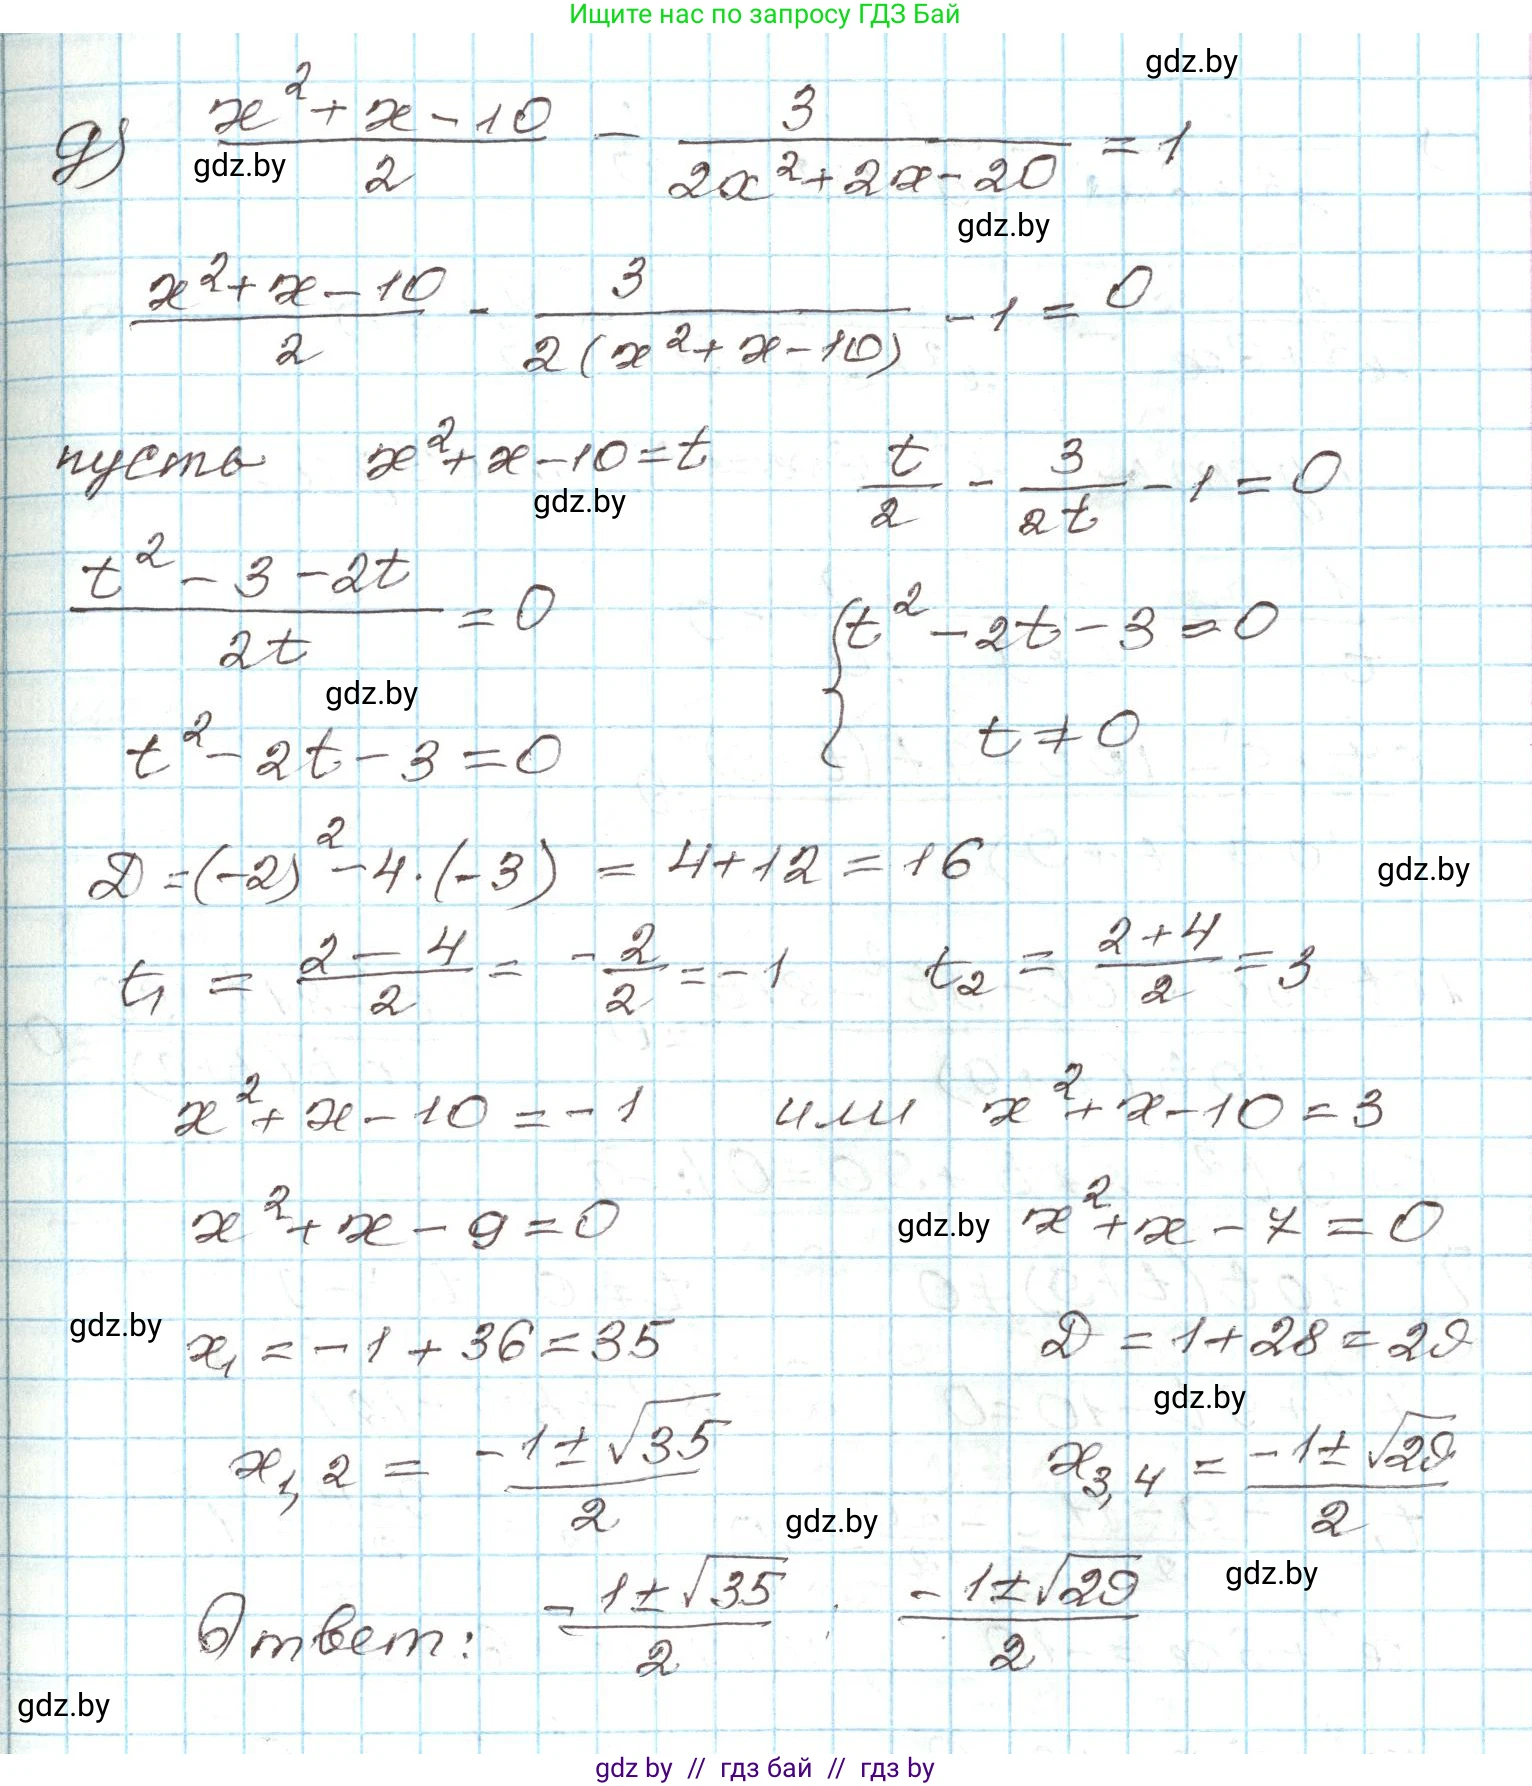 Ищите нас по запросу ГДЗ Бай
gdz.by
д) (x² + x - 10)/2 - 3/(2x² + 2x - 20) = 1
gdz.by
gdz.by
(x² + x - 10)/2 - 3/(2(x² + x - 10)) - 1 = 0
пусть x² + x - 10 = t t/2 - 3/(2t) - 1 = 0
gdz.by
(t² - 3 - 2t)/(2t) = 0 { t² - 2t - 3 = 0
gdz.by
t² - 2t - 3 = 0 t ≠ 0
D = (-2)² - 4·(-3) = 4 + 12 = 16
gdz.by
t₁ = (2 - 4)/2 = -2/2 = -1 t₂ = (2 + 4)/2 = 3
x² + x - 10 = -1 или x² + x - 10 = 3
x² + x - 9 = 0 gdz.by x² + x - 7 = 0
gdz.by
x₁ = -1 + 36 = 35 D = 1 + 28 = 29
gdz.by
x₁,₂ = (-1 ± √35)/2 x₃,₄ = (-1 ± √29)/2
gdz.by
gdz.by
Ответ: (-1 ± √35)/2 ; (-1 ± √29)/2
gdz.by
gdz by // гдз бай // гдз by